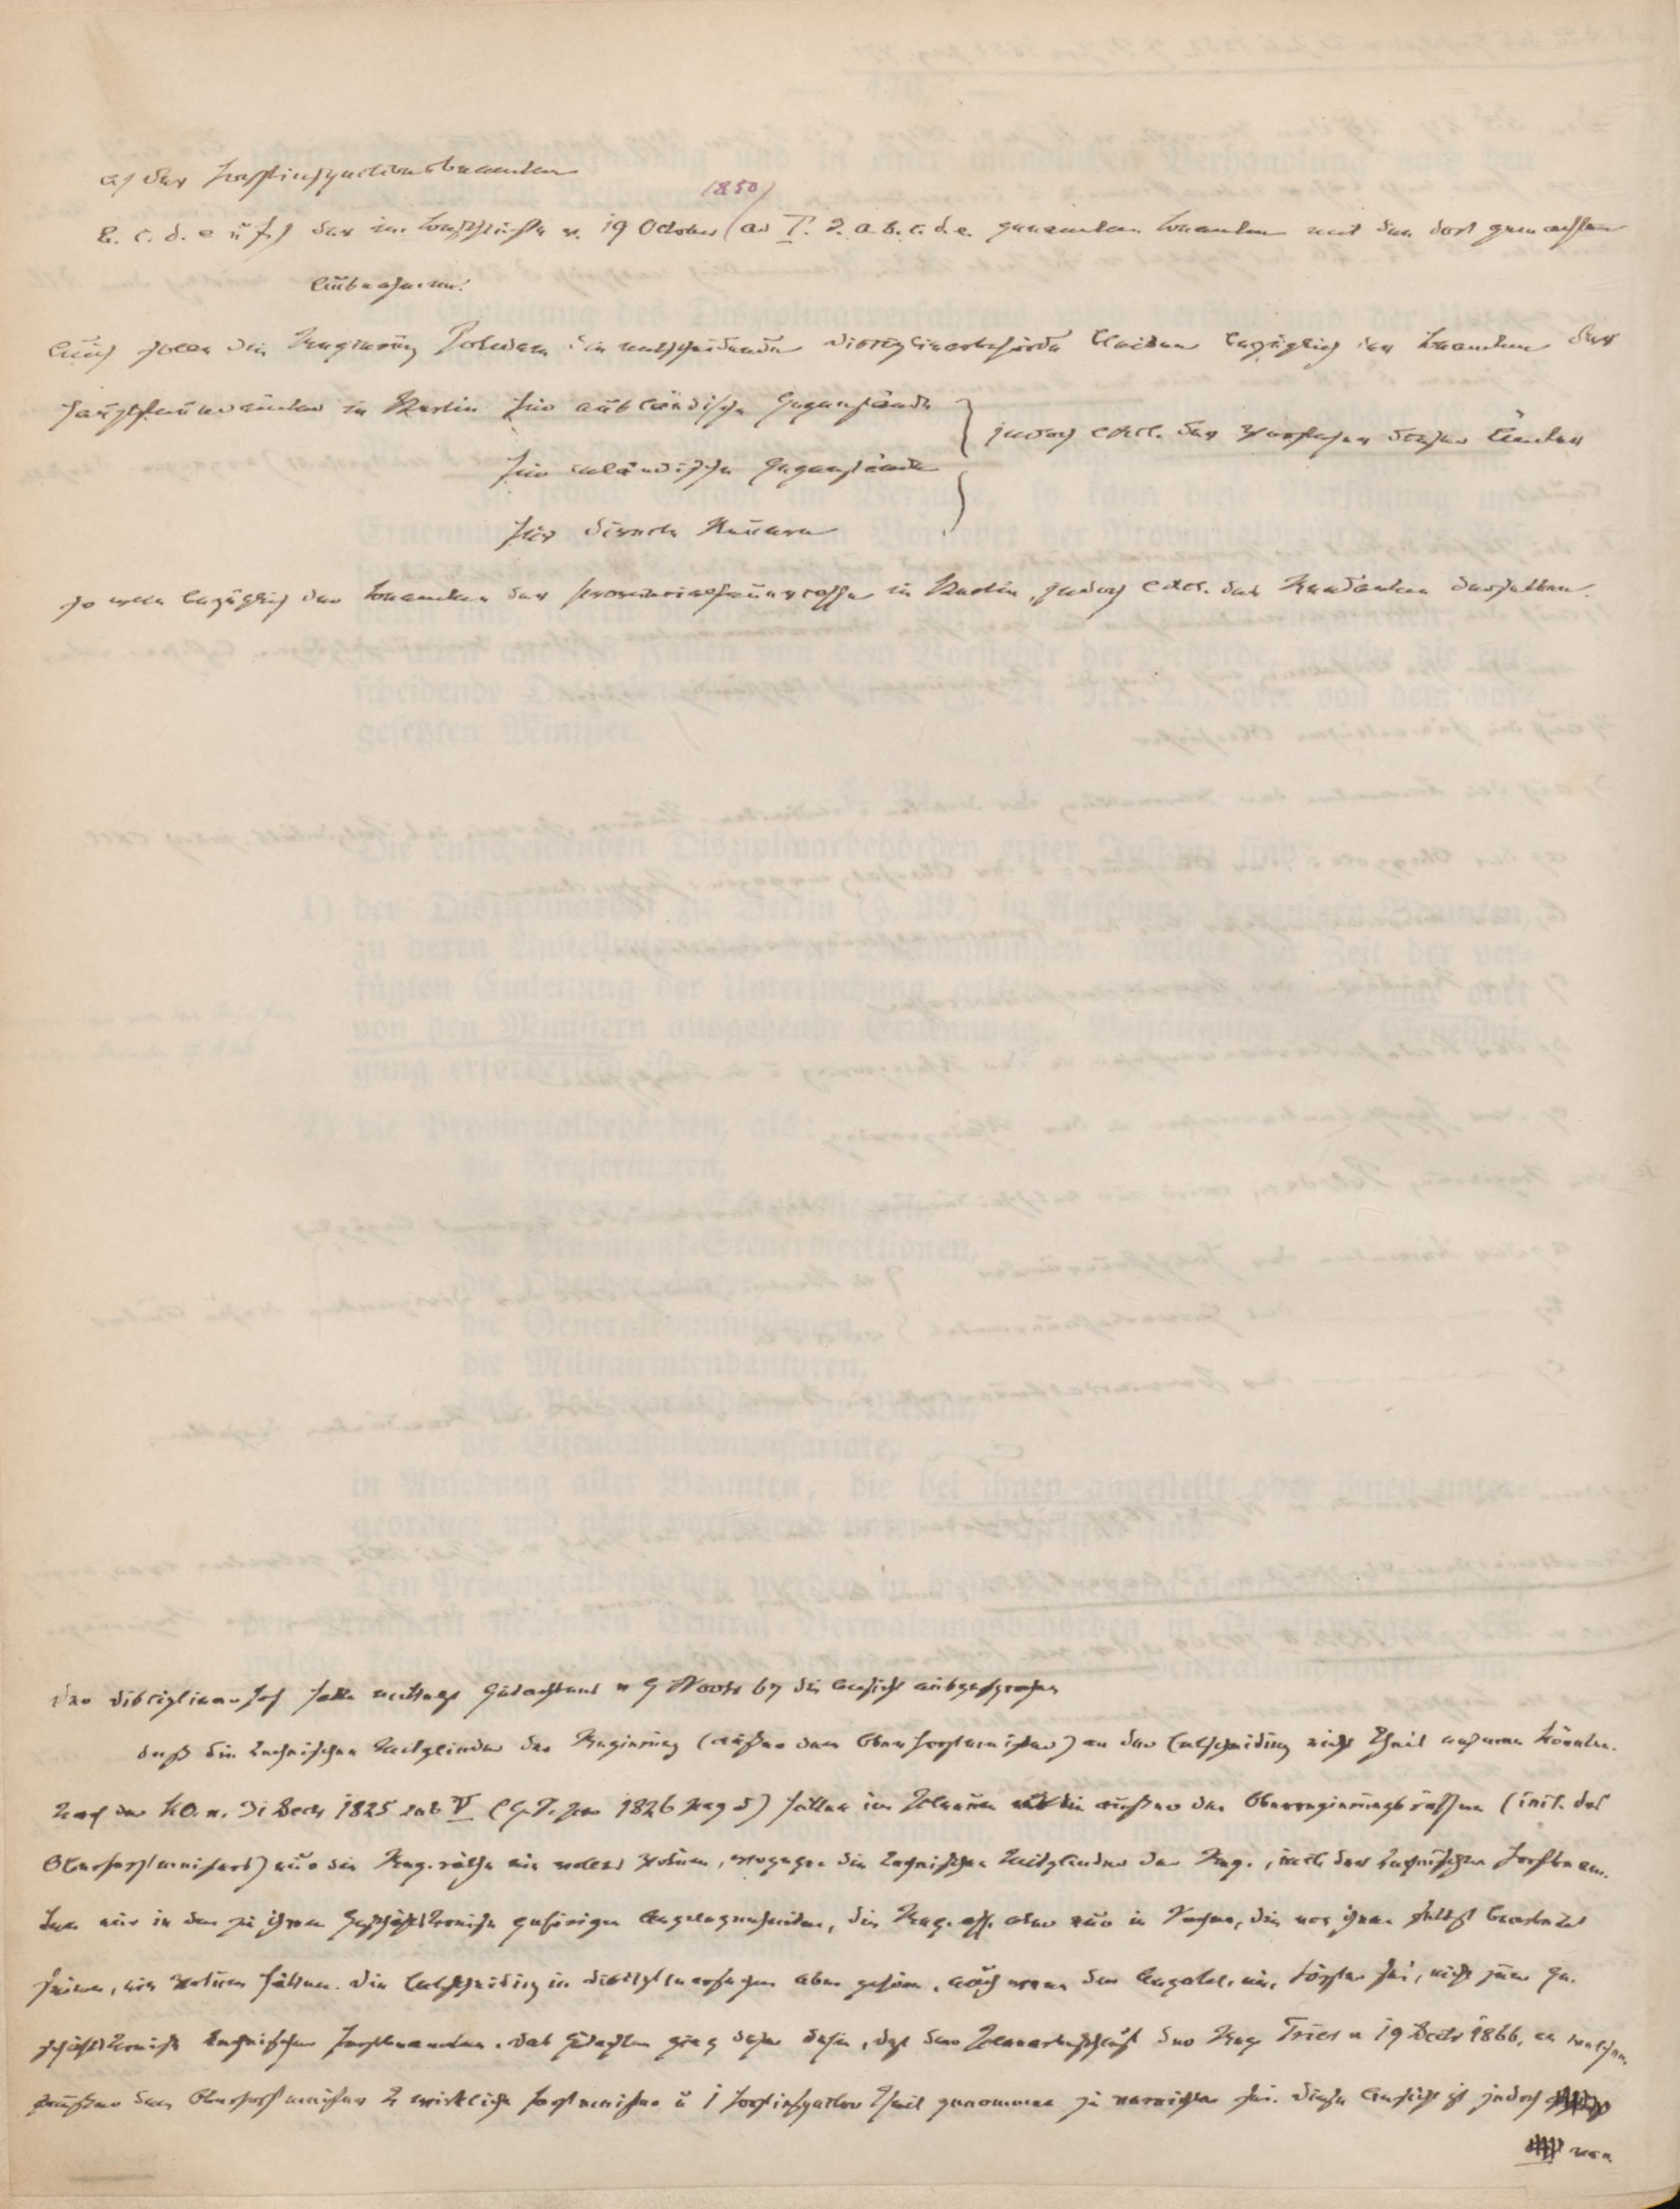 a) der Forstinspectionsbeamten
1850
b. c. d. e u f.) der im Beschlusse v. 19 October ad I. 2. a. b. c. d. e. genannten Beamten mit den dort gemachten
Ausnahmen.
Auch solle die Regierung Potsdam die entscheidende Disciplinarbehörde bleiben bezüglich der Beamten der
Hauptsteuerämter in Berlin für ausländische Gegenstände
für inländische Gegenstände
jedoch excl. der Vorsteher dieser Ämter
für directe Steuern
so wie bezüglich der Beamten der Provinzialsteuerkasse in Berlin, jedoch excl. des Rendanten derselben.
Der Disciplinarhof hatte mittelst Gutachtens v 9 Novbr 67 die Ansicht ausgesprochen
daß die technischen Mitglieder der Regierung (außer dem Oberforstmeister) an der Entscheidung nicht Theil nehmen könnten.
Nach der KO. v. 31 Decbr 1825 sub V (G. S. pro 1826 pag 5) hätten im Plenum außer den Oberregierungsräthen (incl. des
Oberforstmeisters) nur die Reg. räthe ein volles Votum, wogegen die technischen Mitglieder der Reg., incl. der technischen Forstbeam.
ten nur in den zu ihrem Geschäftskreise gehörigen Angelegenheiten, die Reg. ass. aber nur in Sachen, die von ihnen selbst bearbeitet
seien, ein Votum hätten. Die Entscheidung in Disciplinarsachen aber gehöre, auch wenn der Angekl. ein Förster sei, nicht zum Ge.
schäftskreise technischer Forstbeamten. Das Gutachten ging daher dahin, daß der Plenarbeschluß der Reg Trier v 19 Decbr 1866, an welchem
außer dem Oberforstmeister 2 wirkliche Forstmeister u 1 Forstinspector Theil genommen zu vernichten sei. Diese Ansicht ist jedoch
von